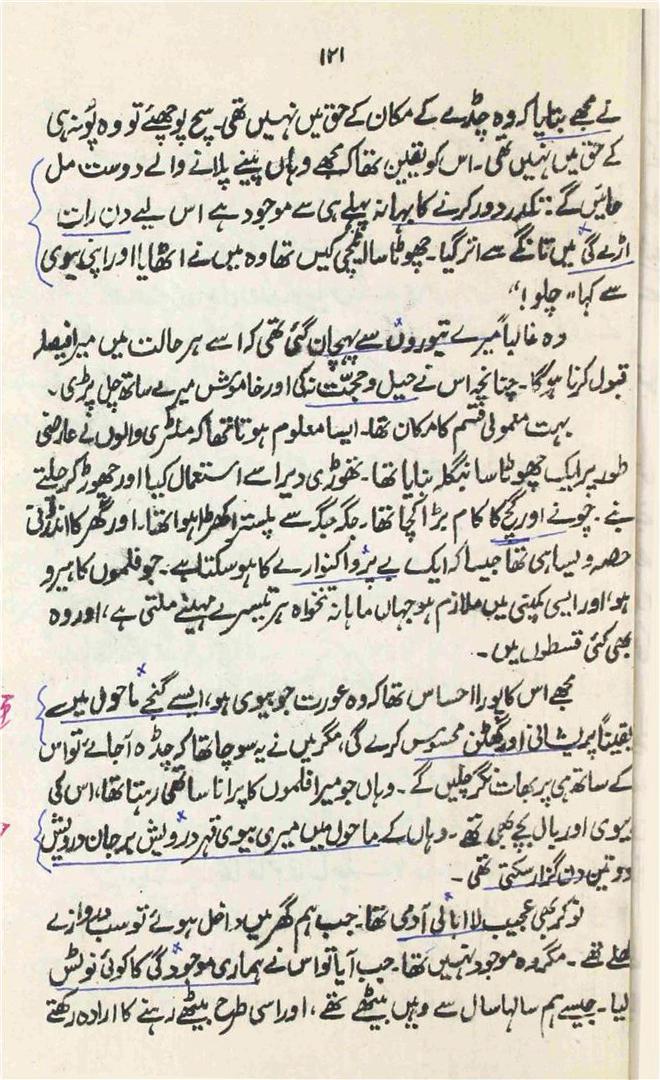 ۱۲۱
نے مجھے بتایا کہ وہ چڈے کے مکان کے حق میں نہیں تھی۔ سچ پوچھئے تو وہ پونہ ہی
کے حق میں نہیں تھی۔ اس کو یقین تھا کہ مجھے وہاں پینے پلانے والے دوست مل
جائیں گے: تکدر دور کرنے کا بہانہ پہلے ہی سے موجود ہے اس لیے دن رات
اڑے گی میں تانگے سے اتر گیا۔ چھوٹا سا اٹیچی کیس تھا وہ میں نے اٹھایا اور اپنی بیوی
سے کہا "چلو!"
وہ غالباً میرے تیوروں سے پہچان گئی تھی کہ اسے ہر حالت میں میرا فیصلہ
قبول کرنا ہوگا۔ چنانچہ اس نے حیل و حجت نہ کی اور خاموش میرے ساتھ چل پڑی۔
بہت معمولی قسم کا مکان تھا۔ ایسا معلوم ہوتا تھا کہ ملٹری والوں نے عارضی
طور پر ایک چھوٹا سا بنگلہ بنایا تھا۔ تھوڑی دیر اسے استعمال کیا اور چھوڑ کر چلتے
بنے۔ چونے اور گچ کا کام بڑا کچا تھا۔ جگہ جگہ سے پلستر اکھڑا ہوا تھا۔ اور گھر کا اندرونی
حصہ ویسا ہی تھا جیسا کہ ایک بے پروا کنوارے کا ہو سکتا ہے۔ جو فلموں کا ہیرو
ہو، اور ایسی کمپنی میں ملازم ہو جہاں ماہانہ تنخواہ ہر تیسرے مہینے ملتی ہے، اور وہ
بھی کئی قسطوں میں۔
مجھے اس کا پورا احساس تھا کہ وہ عورت جو بیوی ہو، ایسے گنجے ماحول میں
یقیناً پریشانی اور گھٹن محسوس کرے گی، مگر میں نے یہ سوچا تھا کہ چڈہ آجائے تو اس
کے ساتھ ہی پربھات نگر چلیں گے۔ وہاں جو میرا فلموں کا پرانا ساتھی رہتا تھا، اس کی
بیوی اور بال بچے بھی تھے۔ وہاں کے ماحول میں میری بیوی قہر درویش بر جان درویش
دو تین دن گزار سکتی تھی۔
نوکر بھی عجیب لاابالی آدمی تھا۔ جب ہم گھر میں داخل ہوئے تو سب دروازے
کھلے تھے۔ مگر وہ موجود نہیں تھا۔ جب آیا تو اس نے ہماری موجودگی کا کوئی نوٹس
لیا۔ جیسے ہم سالہا سال سے وہیں بیٹھے تھے، اور اسی طرح بیٹھے رہنے کا ارادہ رکھتے